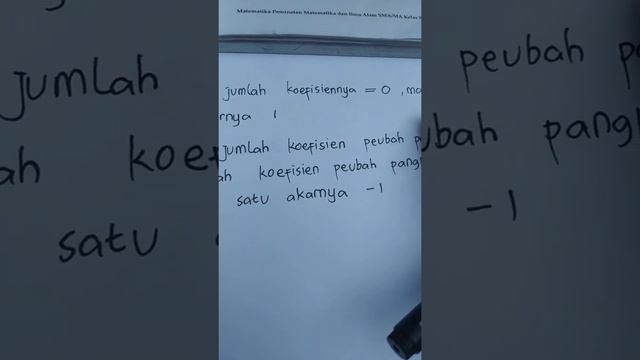 Matematika Peminatan Matematika dan Ilmu Alam SMA/MA Kelas
jumlah koefisiennya = 0 , ma
rnya 1
jumlah koefisien peubah p
ah koefisien peubah pang
satu akarnya -1
jumlah
ah koef
satu
peubah p
ubah pang
-1